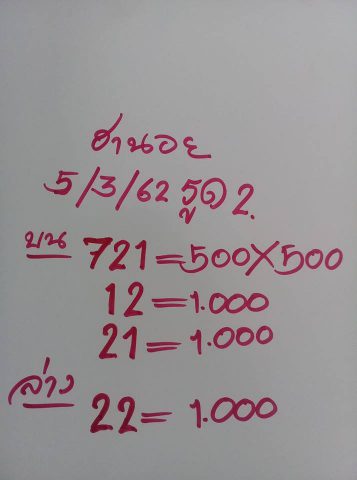 ฮานอย
5/3/62 รูด 2.
บน 721=500X500
12=1.000
21=1.000
ล่าง
22=1.000